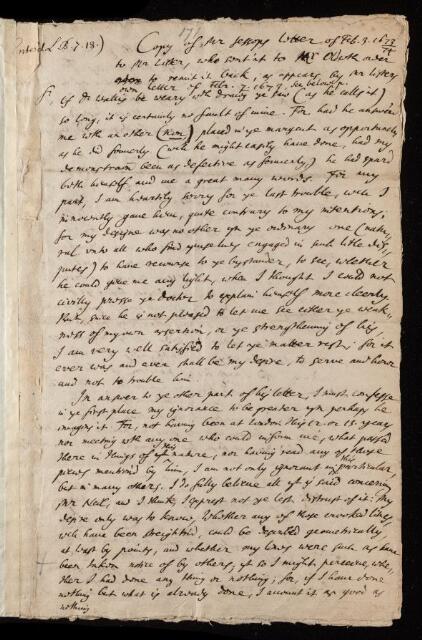 Copy of Mr Jessops letter of Feb. 3. 1673/74
(Enter'd LB. 7. 18.)
to Mr Lister, who sent it to Mr Old. with order
to remit it back, as appears by Mr Listers
own letter of Febr. 7. 1673. see below.
Sr
If Dr Wallis be weary with drawing ye saw (as he calls it)
so long, it is certainly no fault of mine. For had he answerd
me with another (Non) placed in ye margent as opportunely
as he did formerly (wch he might easily have done, had my
demonstraon been as defective as formerly) he had spar'd
both himself and me a great many words. For my
part, I am heartily sorry for ye last trouble, wch I
innocently gave him, quite contrary to my intentions;
for my designe was no other yn ye ordinary one (natu-
ral unto all who find ymselves engaged in such little dis-
putes) to have recourse to ye bystander, to see, whether
he could give me any light, when I thought I could not
civilly presse ye Doctor to explain himself more clearly.
But, since he is not pleased to let me see either ye weak-
ness of my own assertion, or ye strengthening of his,
I am very well satisfied to let ye matter rest; for it
ever was and ever shall be my desire, to serve and honor
and not to trouble him.
In answer to ye other part of his letter, I must confesse
in ye first place my ignorance to be greater yn perhaps he
imagins it. For, not having been at London this 12. or 15. years
nor meeting with any one who could inform me, what passed
there in things of this nature; nor having read any of those
pieces mention'd by him, I am not only ignorant in this particular,
but in many others. I do fully believe all yt is said concerning
Mr Neil, and I think, I exprest not ye lest distrust of it: My
desire only was to know, Whether any of those crooked lines,
wch have been streightned, could be described geometrically,
at least by points; and whether my lines were such as have
been taken notice of by others, yt so I might perceive, whe-
ther I had done any thing or nothing; for, if I have done
nothing but what is already done, I account it as good as
nothing